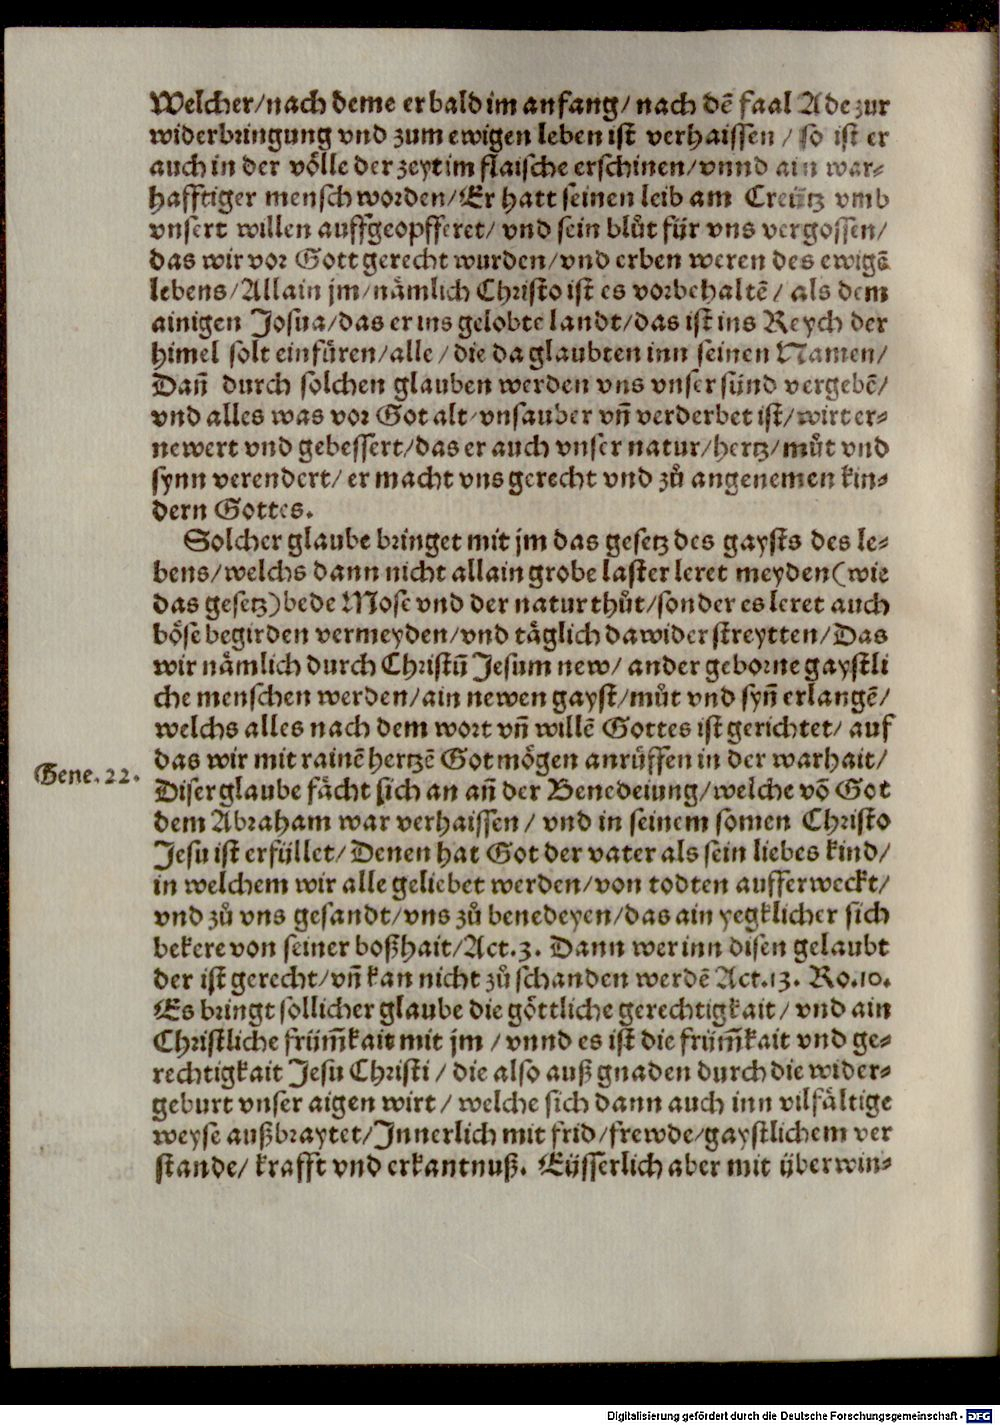 Welcher/nach deme er bald im anfang/ nach dẽ faal Ade zur
widerbringung vnd zum ewigen leben ist verhaissen / so ist er
auch in der völle der zeyt im flaische erschinen/vnnd ain war⸗
hafftiger mensch worden/Er hatt seinen leib am Creütz vmb
vnsert willen auffgeopfferet/ vnd sein blůt für vns vergossen/
das wir vor Gott gerecht wurden/vnd erben weren des ewigẽ
lebens/Allain jm/nämlich Christo ist es vorbehaltẽ/ als dem
ainigen Josua/das er ins gelobte landt/das ist ins Reych der
himel solt einfüren/alle/die da glaubten inn seinen Namen/
Dañ durch solchen glauben werden vns vnser sünd vergebẽ/
vnd alles was vor Got alt/vnsauber vñ verderbet ist/wirt er⸗
newert vnd gebessert/das er auch vnser natur/hertz/můt vnd
synn verendert/ er macht vns gerecht vnd zů angenemen kin⸗
dern Gottes.
Solcher glaube bringet mit jm das gesetz des gaysts des le⸗
bens/welchs dann nicht allain grobe laster leret meyden(wie
das gesetz)bede Mose vnd der natur thůt/sonder es leret auch
böse begirden vermeyden/vnd täglich dawider streytten/Das
wir nämlich durch Christũ Jesum new/ ander geborne gaystli
che menschen werden/ain newen gayst/můt vnd syñ erlangẽ/
welchs alles nach dem wort vñ willẽ Gottes ist gerichtet/ auf
das wir mit rainẽ hertzẽ Got mögen anrüffen in der warhait/
Gene.22.
Diser glaube fächt sich an añ der Benedeiung/welche võ Got
dem Abraham war verhaissen/ vnd in seinem somen Christo
Jesu ist erfüllet/Denen hat Got der vater als sein liebes kind/
in welchem wir alle geliebet werden/von todten aufferweckt/
vnd zů vns gesandt/vns zů benedeyen/das ain yegklicher sich
bekere von seiner boßhait/Act.3. Dann wer inn disen gelaubt
der ist gerecht/vñ kan nicht zů schanden werdẽ Act.13. Ro.10.
Es bringt sollicher glaube die göttliche gerechtigkait/ vnd ain
Christliche früm̃kait mit jm / vnnd es ist die früm̃kait vnd ge⸗
rechtigkait Jesu Christi / die also auß gnaden durch die wider⸗
geburt vnser aigen wirt / welche sich dann auch inn vilfältige
weyse außbraytet/Innerlich mit frid/frewde/gaystlichem ver
stande/ krafft vnd erkantnuß. Eüsserlich aber mit überwin⸗
Digitalisierung gefördert durch die Deutsche Forschungsgemeinschaft - DFG